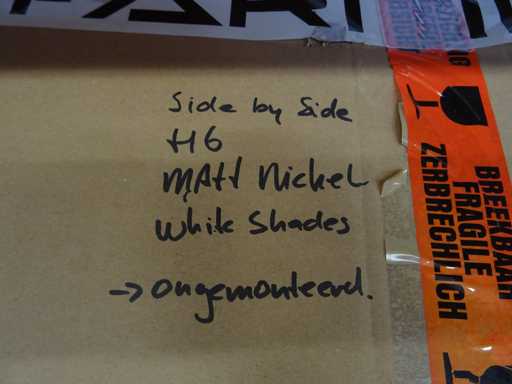 Side by Side
H6
MAtt Nickel
White Shades
→ Ongemonteerd.
BREEKBAAR
FRAGILE
ZERBRECHLICH